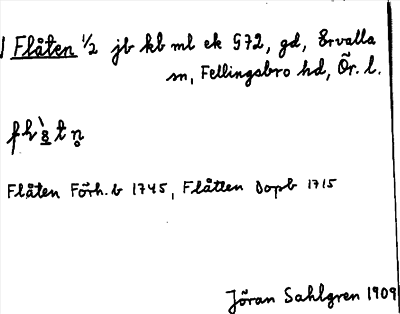 Flåten 1/2 jb kb ml ek 572, gd, Ervalla
sn, Fellingsbro hd, Ör. l.
Flåten Förh.b 1745, Flåtten Dopb 1715
Jöran Sahlgren 1909